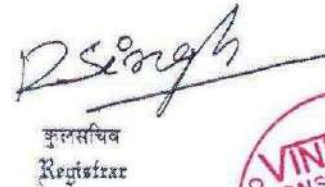 R Singh
कुलसचिव
Registrar
VIN